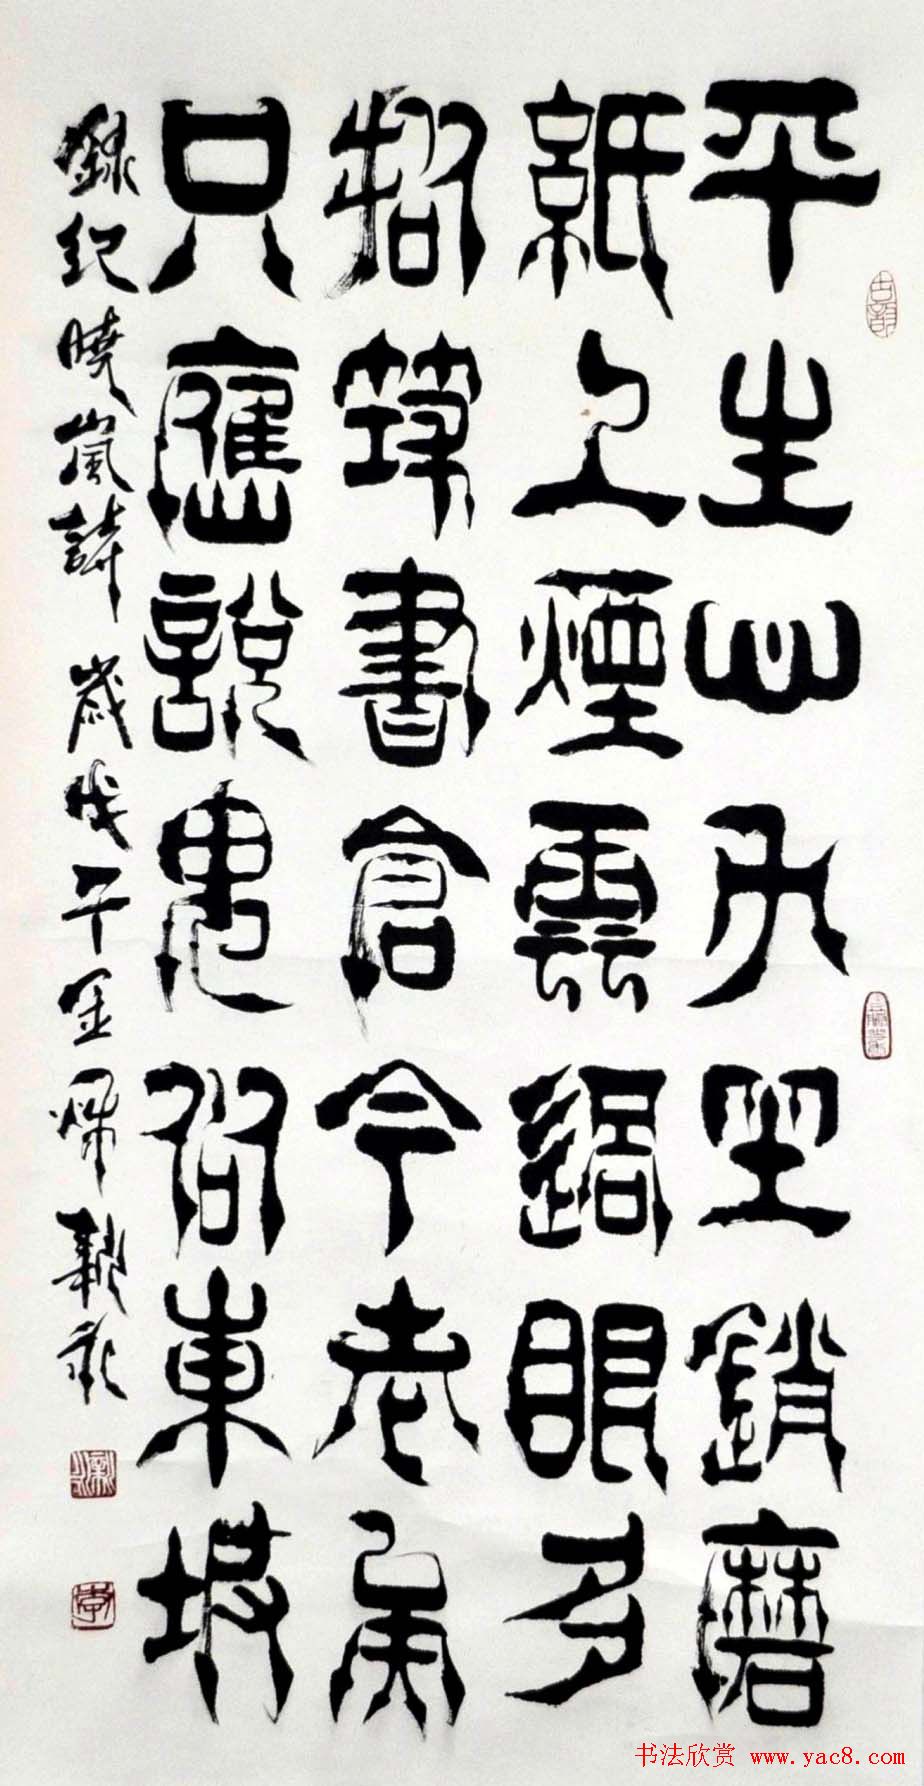 平生心力坐銷磨
紙上煙雲過眼多
筑書倉今老矣
只應說鬼似東坡
錄紀曉嵐詩 歲戊午金
古韻
书法欣赏 www.yac8.com